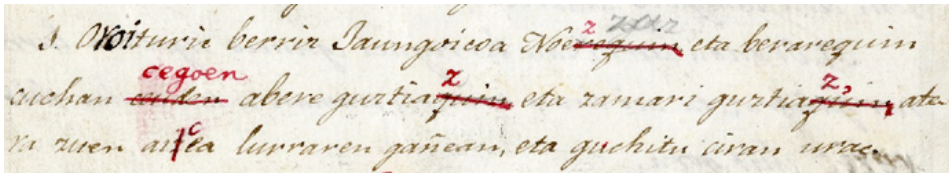 1. Oroituric berriz Jaungoicoa Noerequin z eta berarequin
cegoen
cuchan ceuden abere guztiaquin z eta zamari guztiaquin z, ate
ra zuen aicea lurraren gañean, eta guchitu ciran urac.